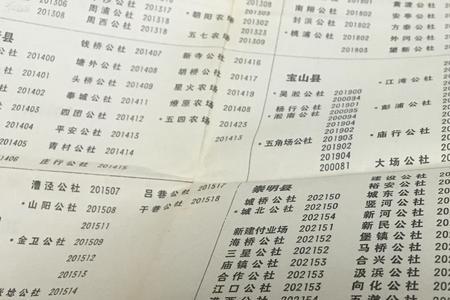 201306
周浦公社 201308
周西公社 201308
·朝阳农场
五七农场
201323
201309
南翔公社
封浜公社
·桃浦公社 201803
黄渡公社
方泰公社
外冈公社
望新公社
县
201400
201402
201405
201403
201404
201412
钱桥公社 201407
塘外公社 201408
头桥公社 201409
奉城公社 201411
四团公社 201412
平安公社 201413
青村公社 201414
庄行公社 201415
新寺公社 201416
胡桥公社 201417
星火农场 201419
燎原农场
·五四农场
201423
宝山县
·吴淞公社 201900
200940
杨行公社 201901
·淞南公社 200940
201902
·五角场公社 201903
201904
200081
·江湾公社
·彭浦公社
·庙行公社
大场公社
漕泾公社 201507
·山阳公社 201508
201511
·金卫公社 201509
201512
201513
201514
吕巷公社 201517
干巷公社 201518
崇明县
城桥公社 202150
·城北公社 202150
新建付业场 202151
海桥公社 202152
三星公社 202152
庙镇公社 202153
合作公社 202153
江口公社 202153
建设公社
裕安公社
城东公社
竖河公社
新河公社
新民公社
堡镇公社
马桥公社
合兴公社
汲浜公社
向化公社
五滧公社